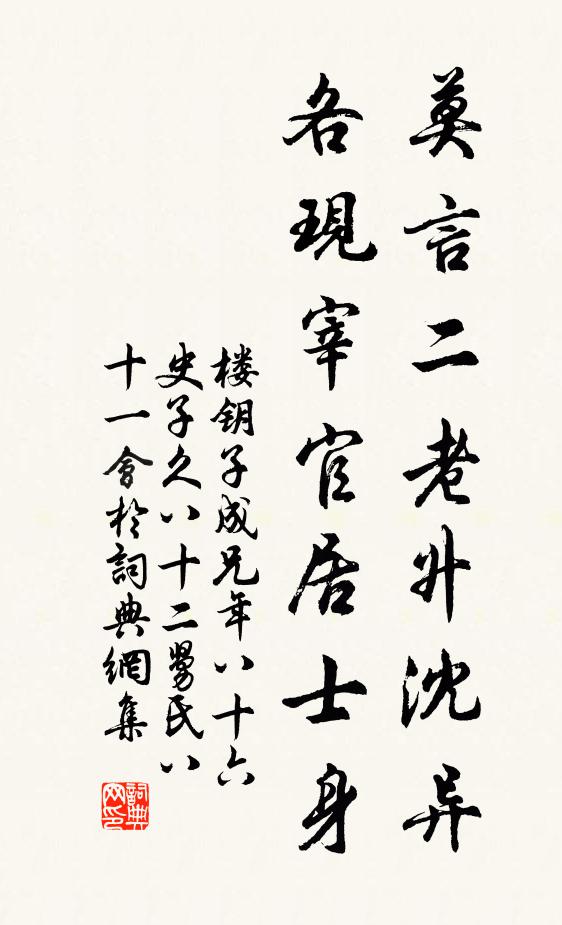 莫言二老升沈异
各現宰官居士身
楼钥子成兄年八十六
史子久八十二勞民八
十一會於詞典網集
詞典网印